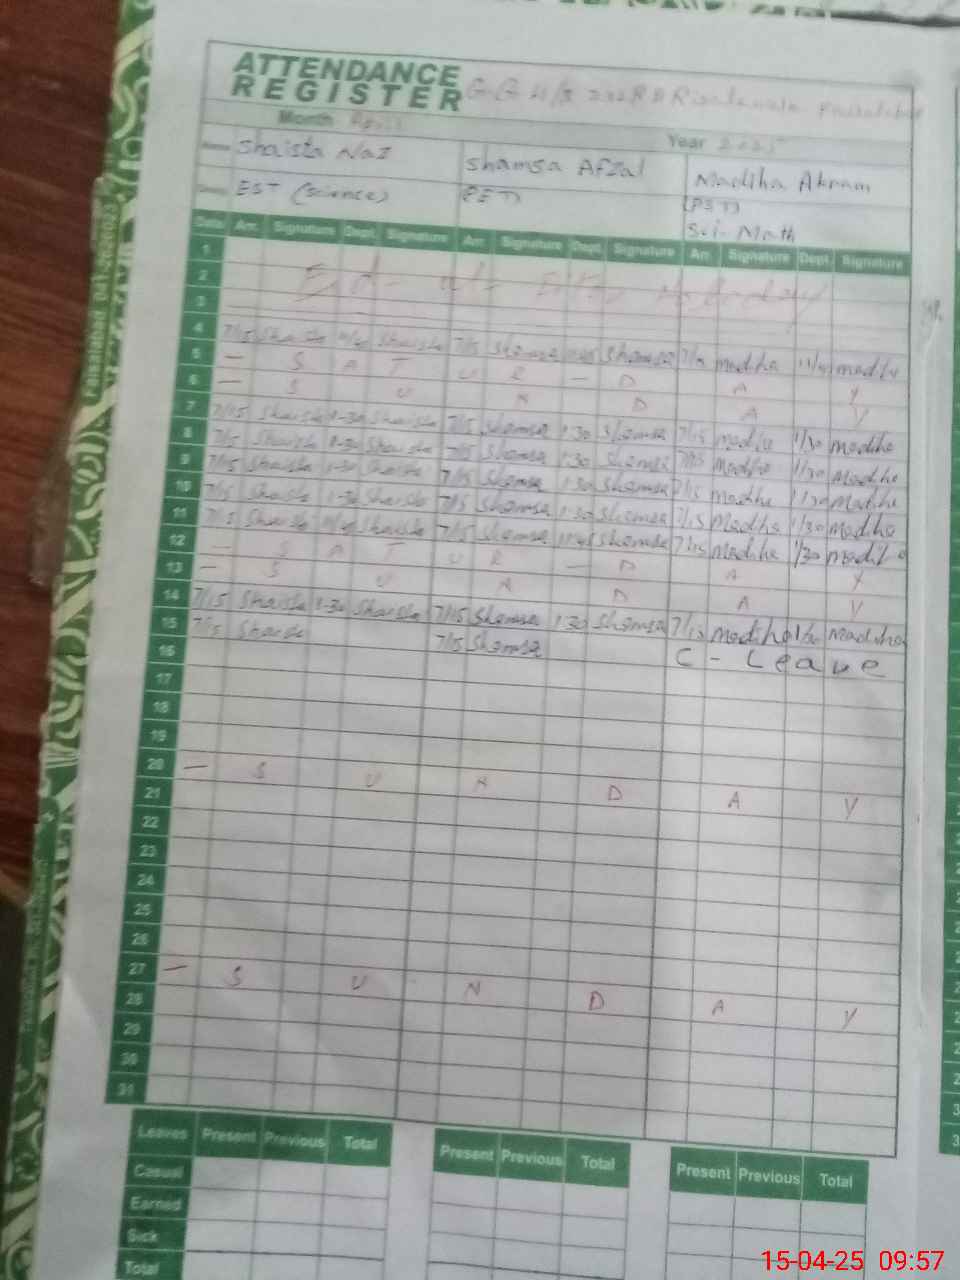 ATTENDANCE
REGISTER
Month April Year 2025
Name Shaista Naz Shamsa Afzal Madiha Akram
EST (Science) (PET) (PST)
Sci-Math
Date Arr. Signature Dept. Signature Arr. Signature Dept. Signature Arr. Signature Dept. Signature
1
2 Holiday
3
4 7/15 Shaista Shaista 7/15 Shamsa Shamsa 7/15 madiha madiha
5 — S A T U R — D A Y
6 — S U N D A Y
7 7/15 Shaista 1-30 Shaista 7/15 Shamsa 1:30 Shamsa 7/15 madiha 1/30 madiha
8 7/15 Shaista 1-30 Shaista 7/15 Shamsa 1:30 Shamsa 7/15 madiha 1/30 Madiha
9 7/15 Shaista 1-30 Shaista 7/15 Shamsa 1:30 Shamsa 7/15 Madiha 1/30 Madiha
10 7/15 Shaista 1-30 Shaista 7/15 Shamsa 1:30 Shamsa 7/15 Madiha 1/30 Madiha
11 7/15 Shaista Shaista 7/15 Shamsa Shamsa 7/15 Madiha 1/30 madiha
12 — S A T U R — D A Y
13 — S U N D A Y
14 7/15 Shaista 1-30 Shaista 7/15 Shamsa 1:30 Shamsa 7/15 Madiha 1/30 Madiha
15 7/15 Shaista 7/15 Shamsa C - Leave
16
17
18
19
20 — S U N D A Y
21
22
23
24
25
26
27 — S U N D A Y
28
29
30
31
Leaves Present Previous Total Present Previous Total Present Previous Total
Casual
Earned
Sick
Total
15-04-25 09:57